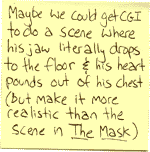 Maybe we could get CGI
to do a scene where
his jaw literally drops
to the floor & his heart
pounds out of his chest
(but make it more
realistic than the
scene in The Mask)